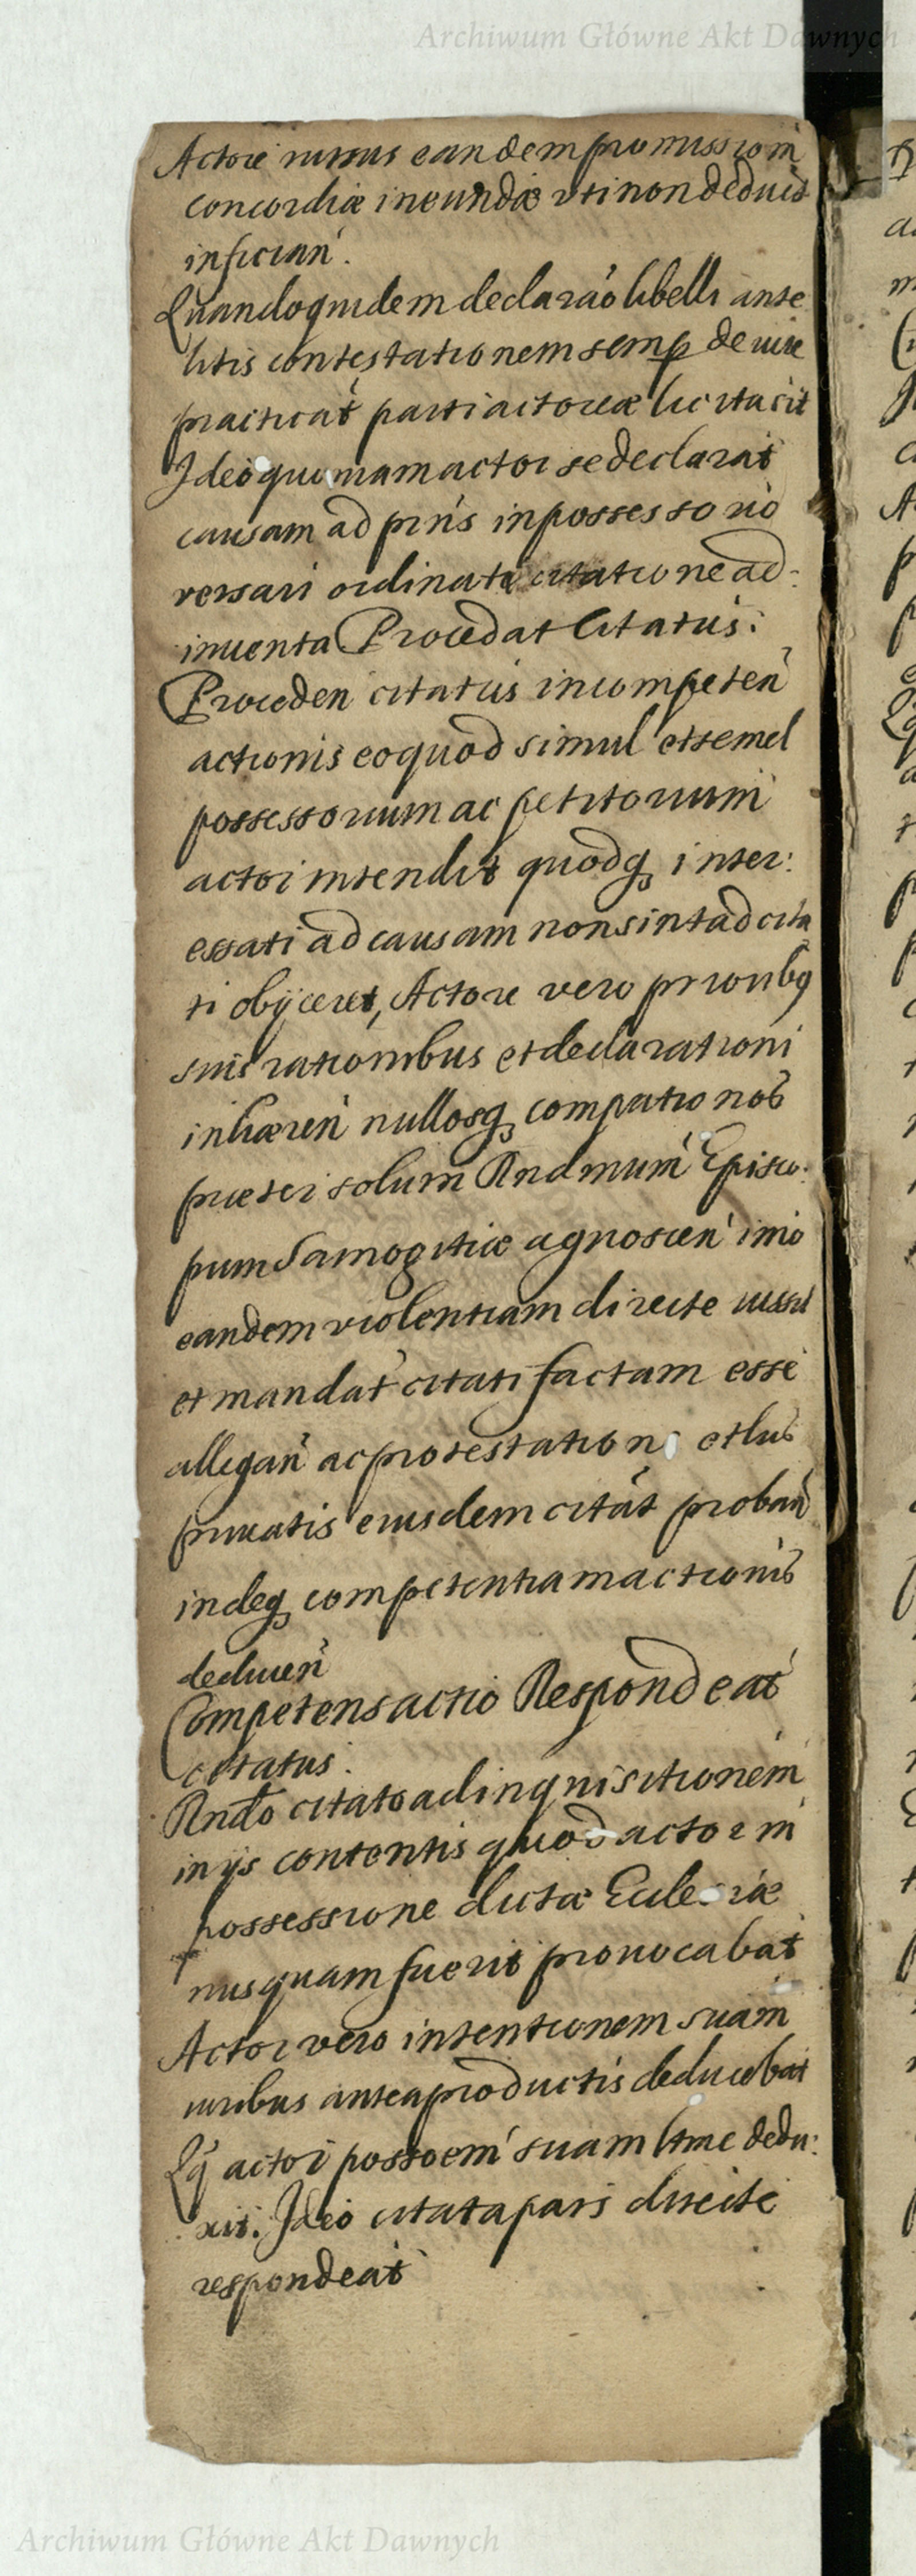 Archiwum Główne Akt Dawnych
Actore rursus eandem promissiom
concordiæ ineundæ uti non deduct
infician.
Quandoquidem declarao libelli ante
litis contestationem semp de iure
practicat parti actoreæ licita sit
Ideo quoniam actor se declarat
causam ad pñs in possessorio
versari ordinata citatione ad-
inuenta Procedat Citatus.
Proceden citatus incompeten
actionis eo quod simul et semel
possessorium ac petitorium
actor intendit quodq inter:
essati ad causam non sint ad cita
ti obijceret, Actore vero prioribq
suis rationibus et declarationi
inhæren nullosq compationos
præter solum Rndmum Episco:
pum Samogitiæ agnoscen imo
eandem violentiam directe iussu
et mandat citati factam esse
allegan ac protestation et lris
priuatis eiusdem citat proban
indeq competentiam actionis
deducen
Competens actio Respondeat
citatus.
Rndo citato ad inquisitionem
in ijs contentis quod actor in
possessione dictæ Ecclesiæ
nusquam fuerit prouocabat
Actor vero intentionem suam
iuribus antea productis deducebat
Qq actor possoem suam ltme dedu:
xit. Ideo citata pars directe
respondeat
Archiwum Główne Akt Dawnych